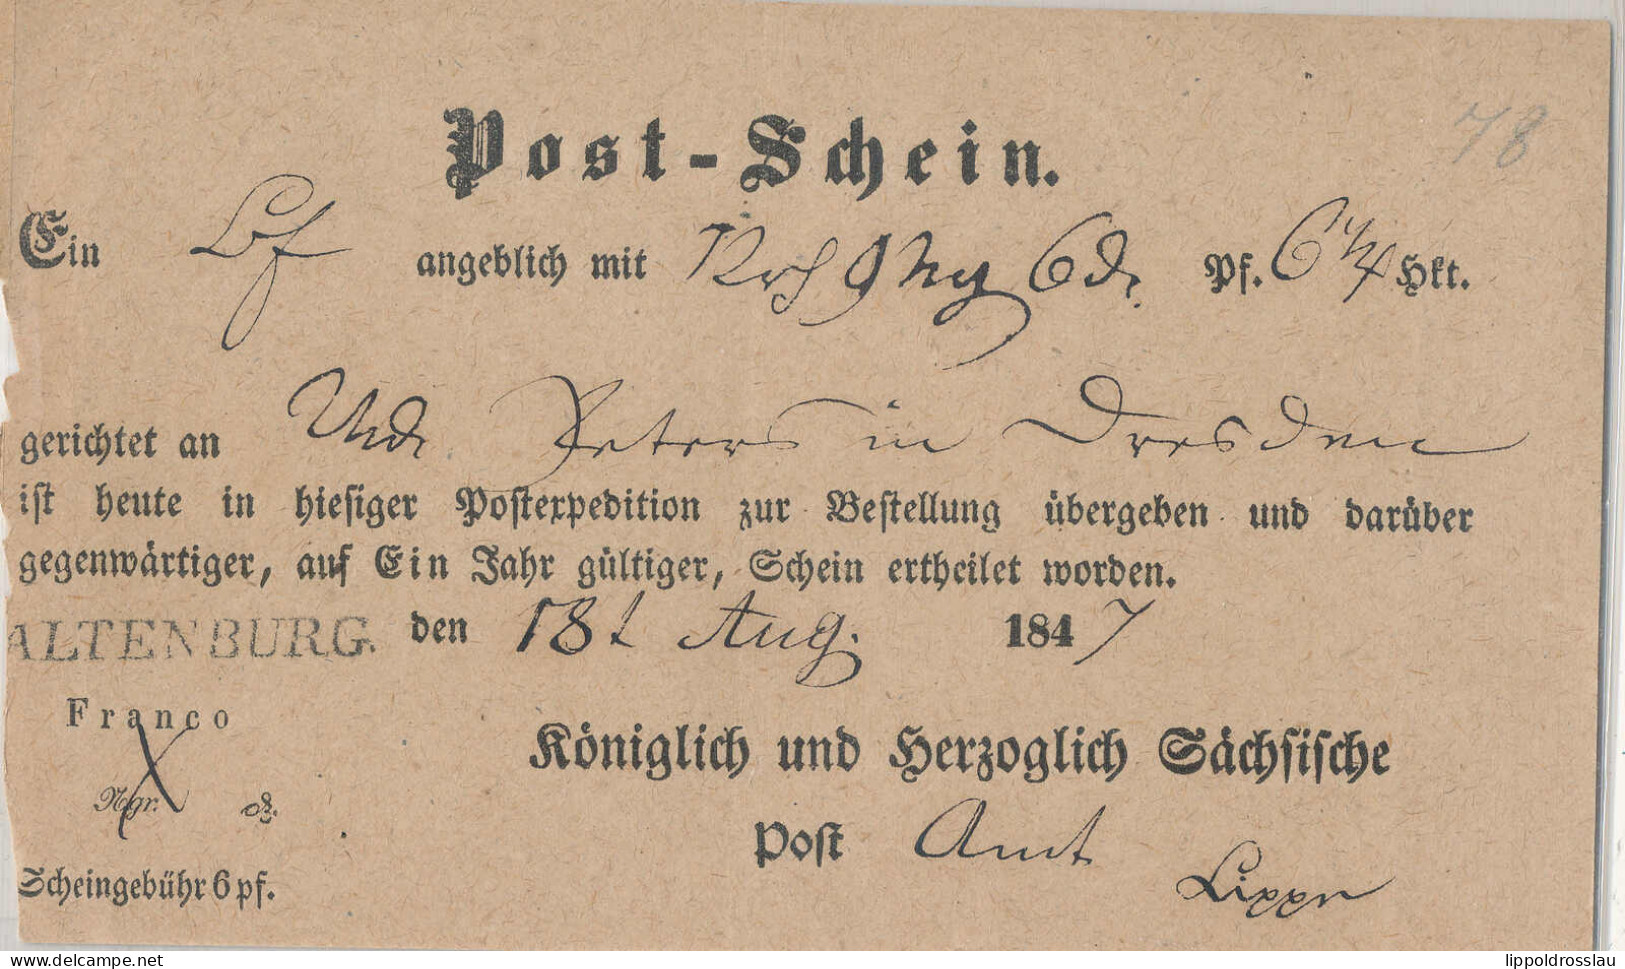 78
Post-Schein.
Ein Bf angeblich mit 9 Ng 6 Pf. 6 1/4 Hkt.
gerichtet an Peters in Dresden
ist heute in hiesiger Postexpedition zur Bestellung übergeben und darüber
gegenwärtiger, auf Ein Jahr gültiger, Schein ertheilet worden.
ALTENBURG. den 18t Aug. 1847
Franco
Königlich und Herzoglich Sächsische
Ngr. ₰.
Post Amt
Scheingebühr 6 pf.
delcampe.net
lippoldrosslau